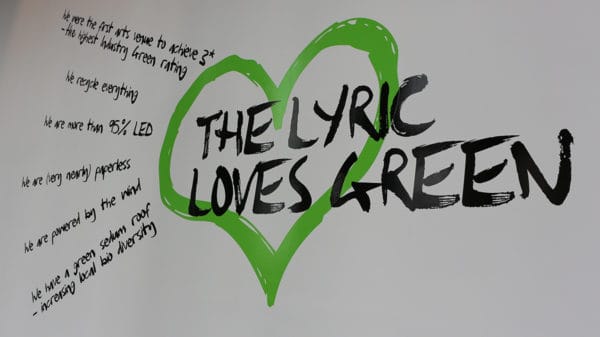 We were the first arts venue to achieve 3*
- the highest Industry Green rating
We recycle everything
We are more than 95% LED
We are (very nearly) paperless
We are powered by the wind
We have a green sedum roof
- increasing local bio diversity
THE LYRIC
LOVES GREEN